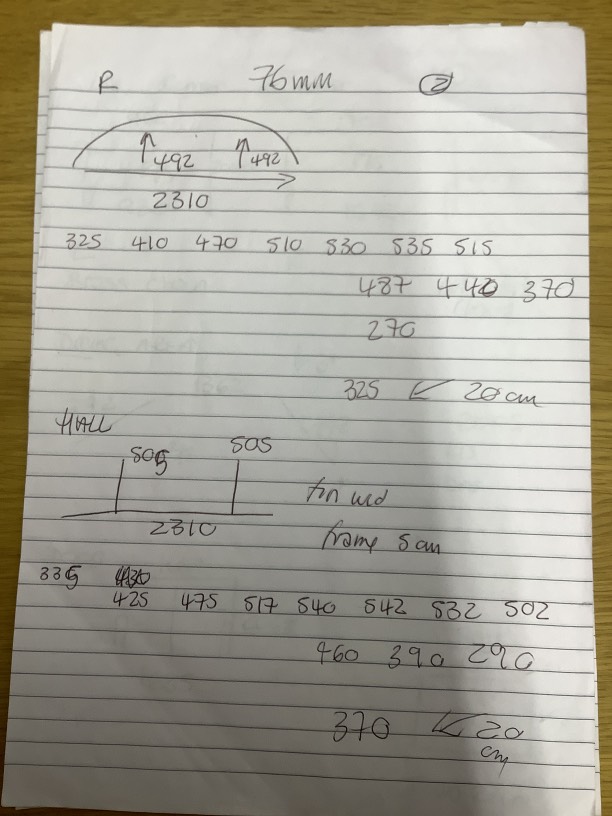 R 76mm 2
492 492
2310
325 410 470 510 530 535 515
487 440 370
270
325 20cm
HALL
505 505
2310
frame 5cm
335
425 475 517 540 542 532 502
460 390 290
370 20
cm